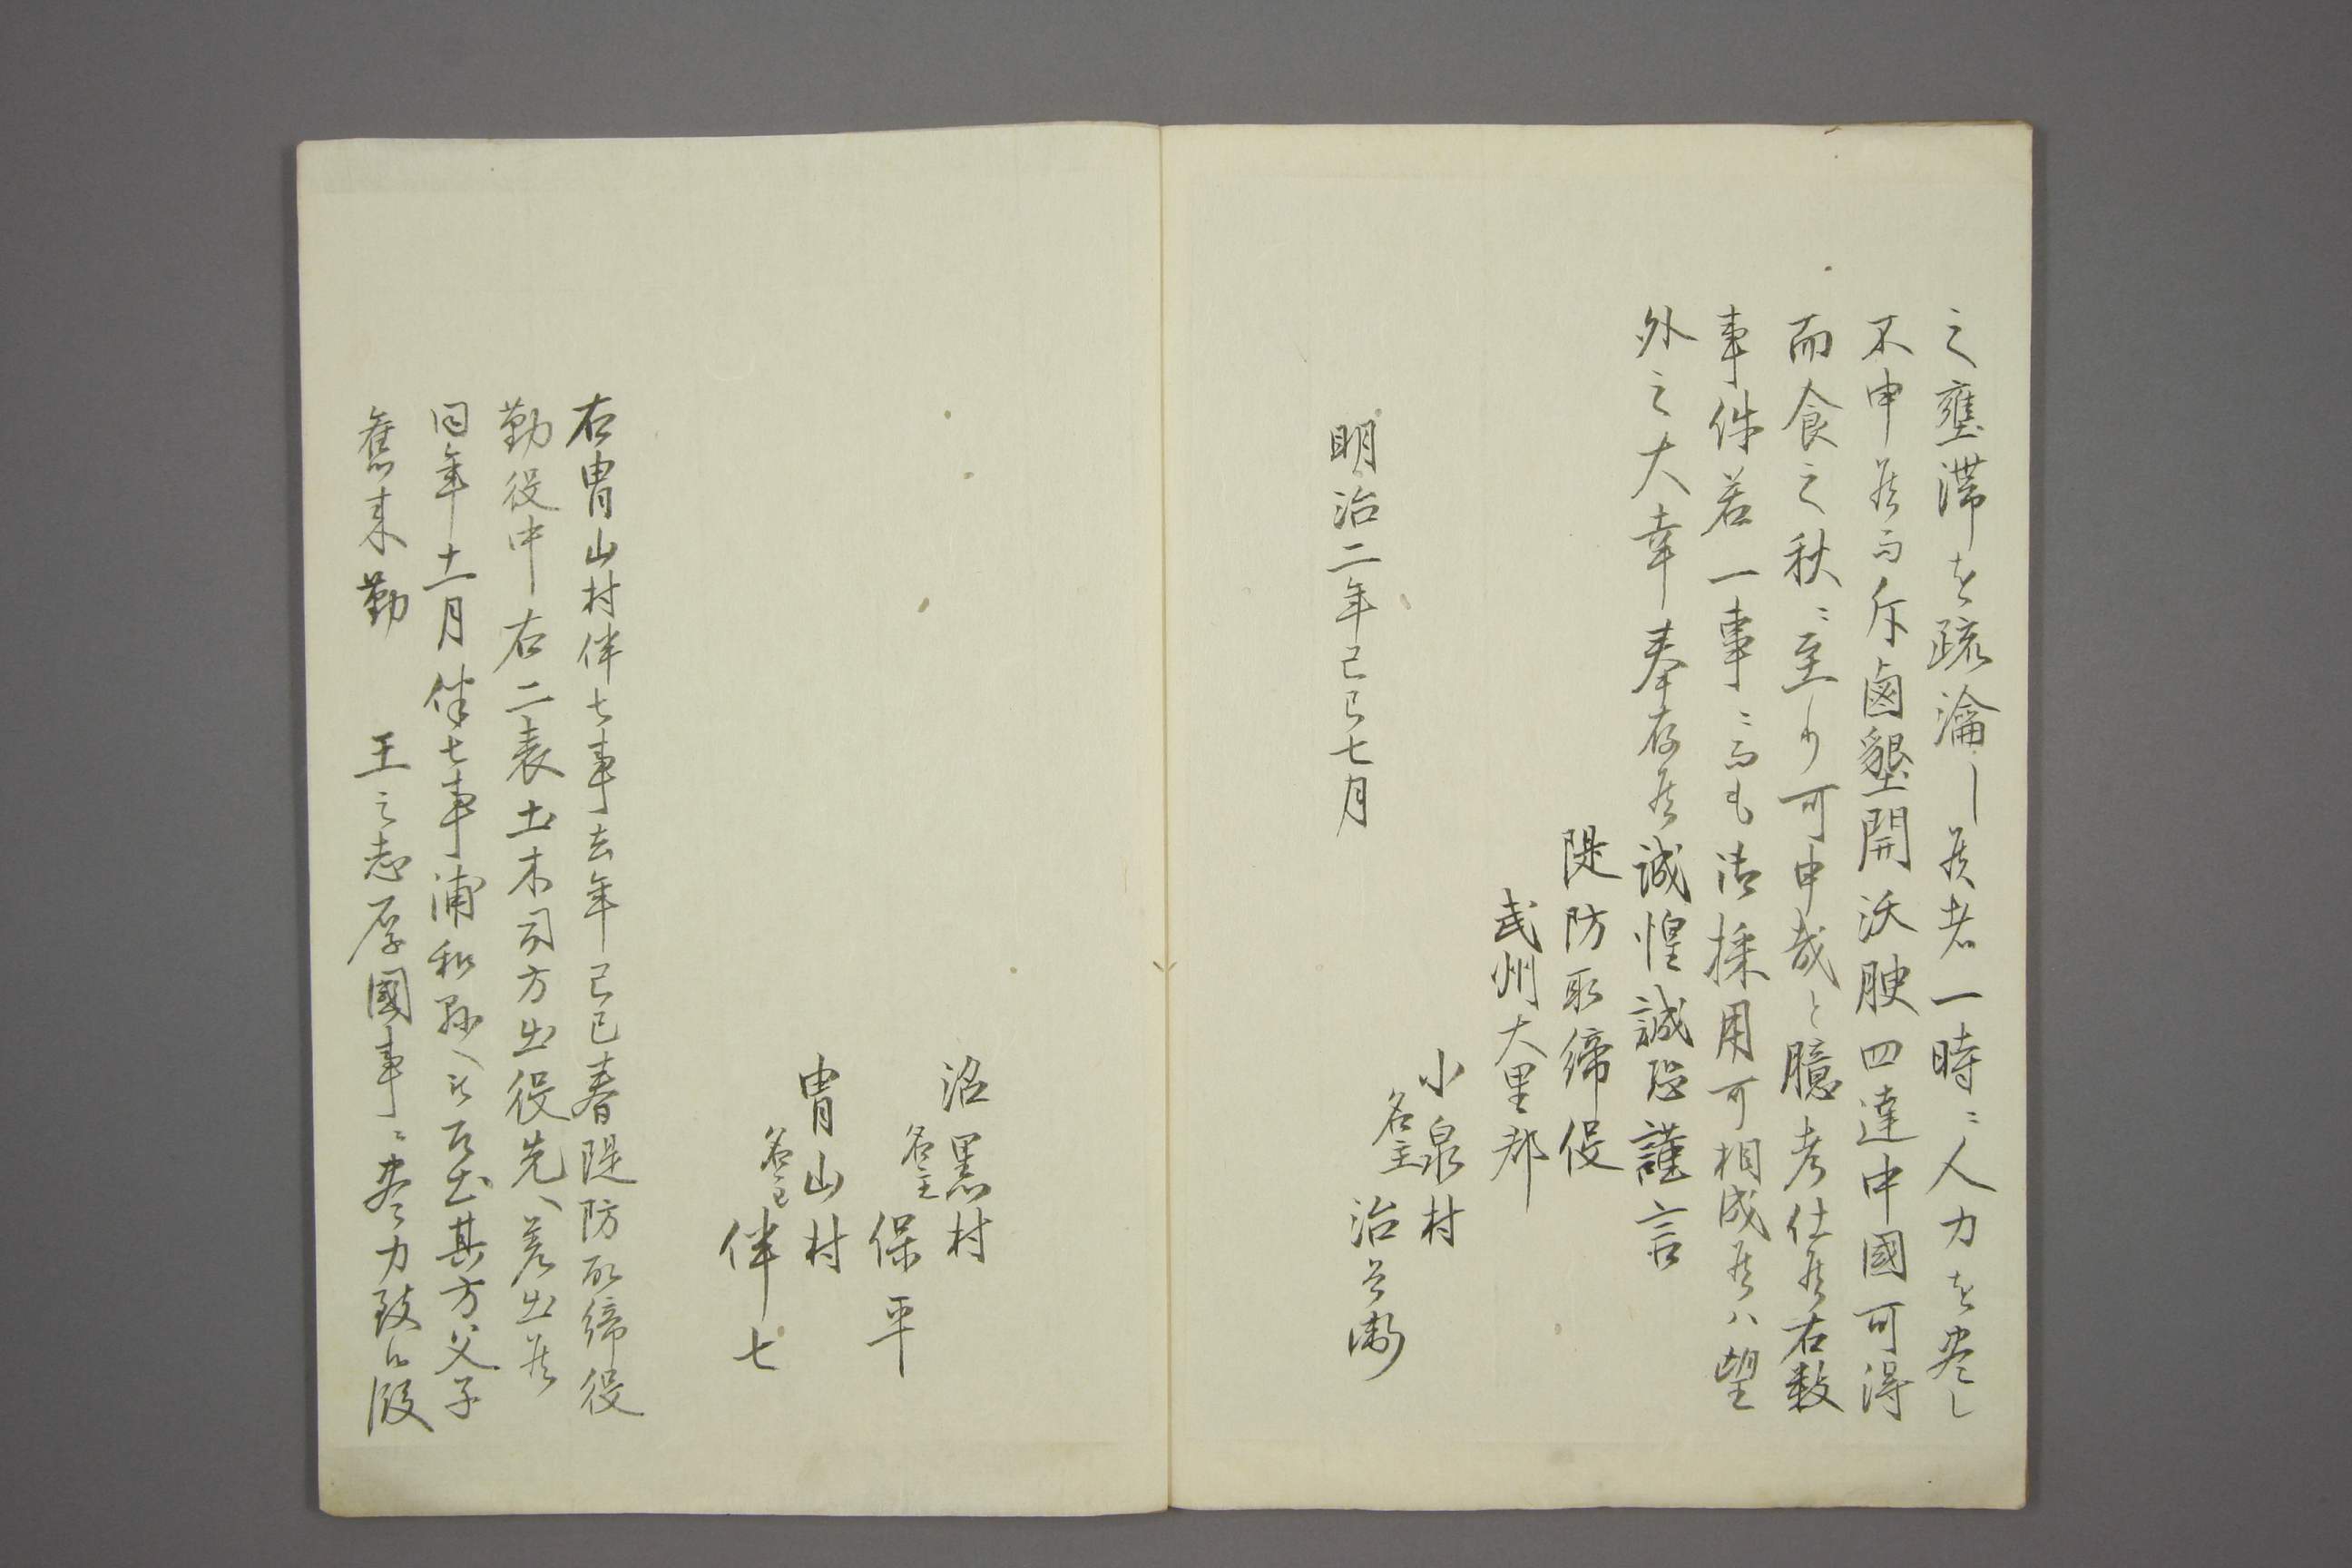 之壅滞を疏瀹し候者一時ニ人力を尽し
不申候而斥鹵墾開沃腴四達中國可得
而食之秋ニ至り可申哉と臆考仕候右数
事件若一事ニ而も御採用可相成候ハ望
外之大幸奉存候誠惶誠恐謹言
堤防取締役
武州大里郡
小泉村
名主
治兵衛
明治二年己巳七月
沼黒村
名主
保平
冑山村
名主
伴七
右冑山村伴七事去年己巳春堤防取締役
勤役中右二表土木司方出役先へ差出候
同年十一月伴七事浦和縣へ被召出其方父子
舊来勤王之志厚國事ニ尽力致候段